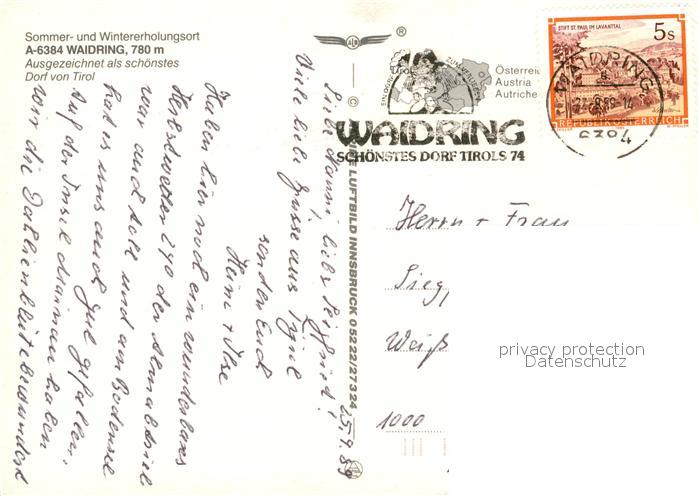 Sommer- und Wintererholungsort
A-6384 WAIDRING, 780 m
Ausgezeichnet als schönstes
Dorf von Tirol
®
Österreich
Austria
Autriche
WAIDRING
SCHÖNSTES DORF TIROLS 74
STIFT ST. PAUL IM LAVANTTAL
5s
REPUBLIK ÖSTERREICH
WAIDRING
LUFTBILD INNSBRUCK 05222/27324
25.9.89
Liebe Hanni, lieber Siegfried!
Viele liebe Grüsse aus Tirol
senden Euch
Heini + Ilse
Haben hier noch ein wunderbares
Herbstwetter 24° der Almabtrieb
war auch toll und am Bodensee
hat es uns auch gut gefallen.
Auf der Insel Mainau haben
wir die Dahlienblüte bewundert
Herrn + Frau
Sieg
Weiß
1000
privacy protection
Datenschutz